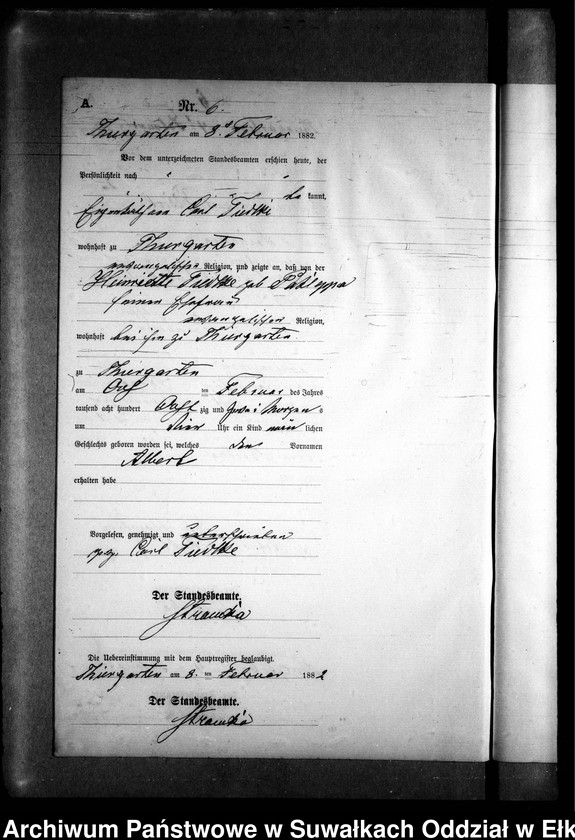 A.
Nr. 6.
Thurgarten am 8. Februar 1882.
Vor dem unterzeichneten Standesbeamten erschien heute, der
Persönlichkeit nach
be kannt,
Carl Tiedtke
wohnhaft zu Thurgarten
evangelischer Religion, und zeigte an, daß von der
Henriette Tiedtke geb.
seiner Ehefrau
evangelischer Religion,
wohnhaft bei ihm zu Thurgarten
zu Thurgarten
am ten Februar des Jahres
tausend acht hundert Acht zig und zwei Morgens
um vier Uhr ein Kind männ lichen
Geschlechts geboren worden sei, welches den Vornamen
Albert
erhalten habe
Vorgelesen, genehmigt und unterschrieben
gez. Carl Tiedtke
Der Standesbeamte.
Die Uebereinstimmung mit dem Hauptregister beglaubigt.
Thurgarten am 8. ten Februar 1882
Der Standesbeamte.
Archiwum Państwowe w Suwałkach Oddział w Ełk